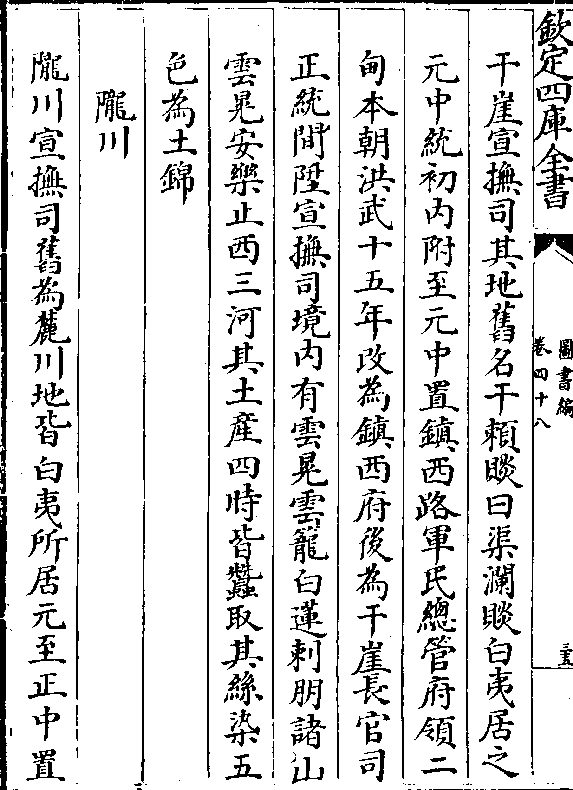 欽定四庫全書
圖書編
卷四十八
干崖宣撫司其地舊名干賴睒曰渠瀾睒白夷居之
元中統初内附至元中置鎮西路軍民總管府領二
甸本朝洪武十五年改為鎮西府後為干崖長官司
正統間陞宣撫司境内有雲晃雲籠白蓮刺朋諸山
雲晃安樂止西三河其土産四時皆蠶取其絲染五
色為土錦
隴川
隴川宣撫司舊為麓川地皆白夷所居元至正中置